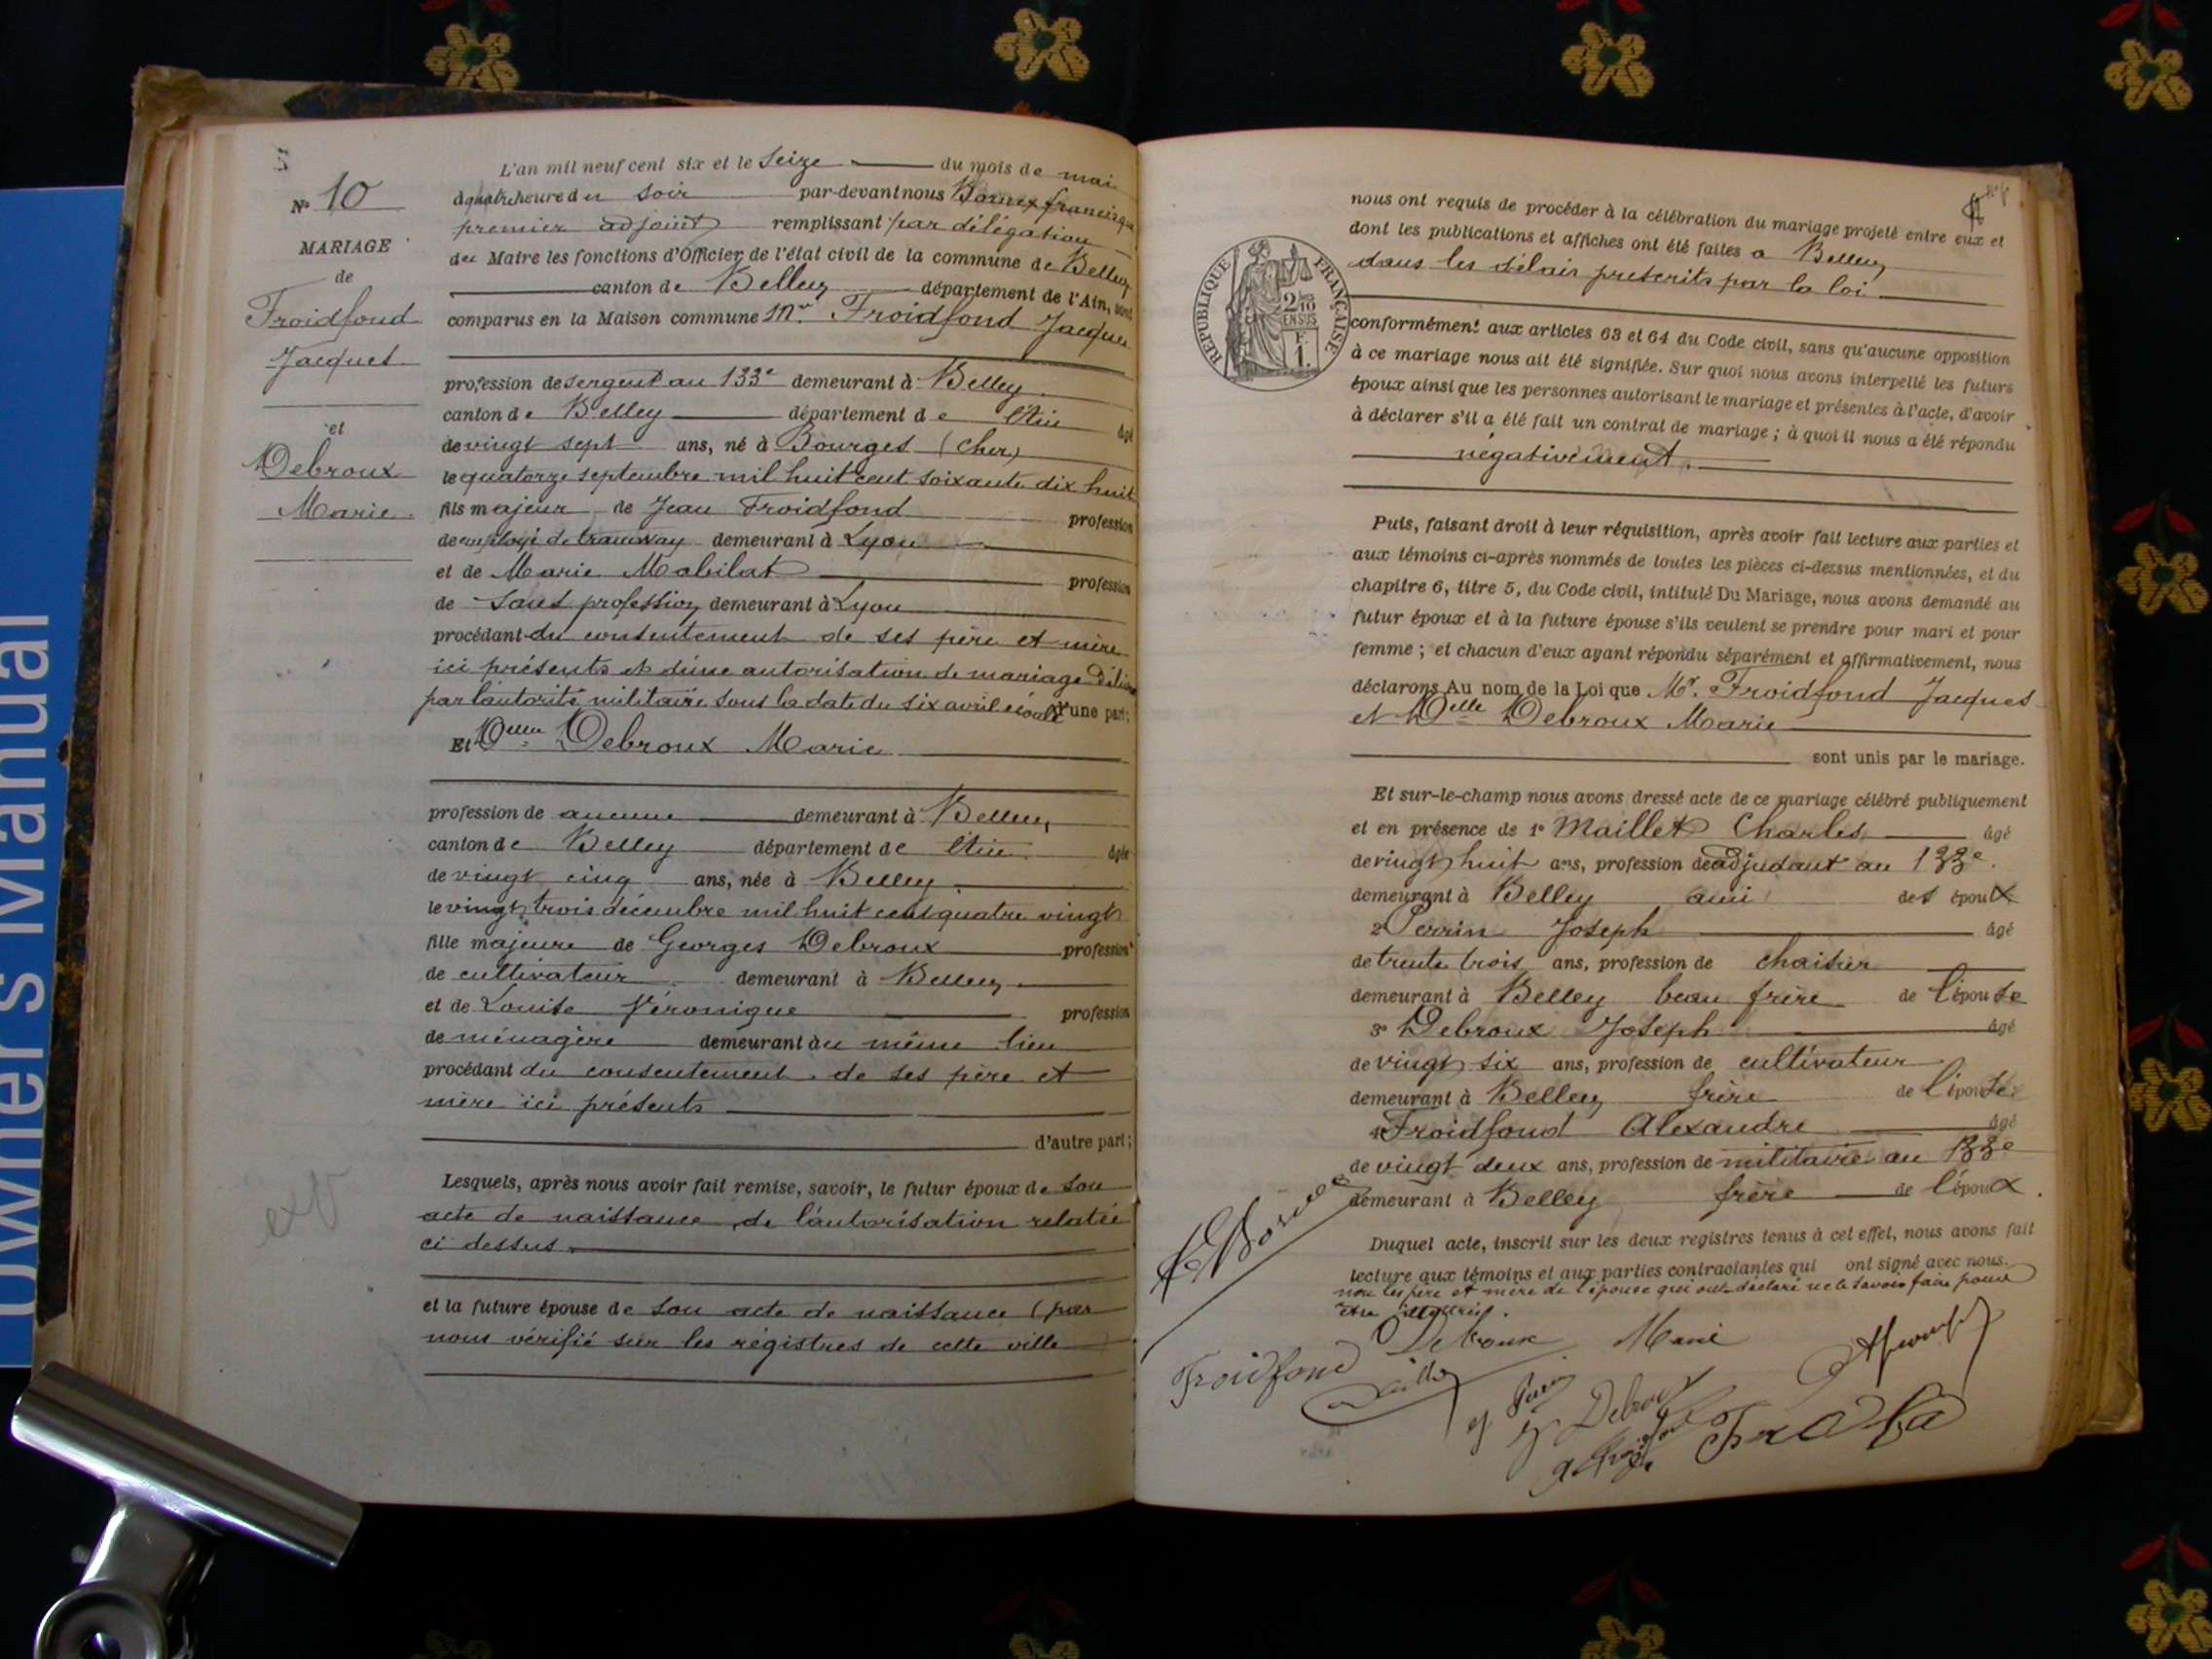 Owner's Manual
N° 10
MARIAGE
de
Froidfond
Jacques
et
Debroux
Marie
L'an mil neuf cent six et le Seize du mois de mai
à quatre heure du soir par-devant nous
premier adjoint remplissant par délégation
du Maire les fonctions d'Officier de l'état civil de la commune de Belley
canton de Belley département de l'Ain, sont
comparus en la Maison commune Mr. Froidfond Jacques
profession de sergent au 133e demeurant à Belley
canton de Belley département de l'Ain âgé
de vingt sept ans, né à Bourges (Cher)
le quatorze septembre mil huit cent soixante dix huit
fils majeur de Jean Froidfond profession
de employé de tramway demeurant à Lyon
et de Marie Mabilat profession
de sans profession demeurant à Lyon
procédant du consentement de ses père et mère
ici présents et d'une autorisation de mariage délivrée
par l'autorité militaire sous la date du six avril écoulé d'une part;
Et Delle Debroux Marie
profession de aucune demeurant à Belley
canton de Belley département de l'Ain âgée
de vingt cinq ans, née à Belley
le vingt trois décembre mil huit cent quatre vingt
fille majeure de Georges Debroux profession
de cultivateur demeurant à Belley
et de Louise Véronique profession
de ménagère demeurant au même lieu
procédant du consentement de ses père et
mère ici présents
d'autre part;
Lesquels, après nous avoir fait remise, savoir, le futur époux de son
acte de naissance, de l'autorisation relatée
ci dessus
et la future épouse de son acte de naissance (par
nous vérifié sur les régistres de cette ville
ext
nous ont requis de procéder à la célébration du mariage projeté entre eux et
dont les publications et affiches ont été faites a Belley
dans les délais prescrits par la loi
RÉPUBLIQUE FRANÇAISE
2/10
EN SUS
F.
1.
conformément aux articles 63 et 64 du Code civil, sans qu'aucune opposition
à ce mariage nous ait été signifiée. Sur quoi nous avons interpellé les futurs
époux ainsi que les personnes autorisant le mariage et présentes à l'acte, d'avoir
à déclarer s'il a été fait un contrat de mariage ; à quoi il nous a été répondu
négativement.
Puis, faisant droit à leur réquisition, après avoir fait lecture aux parties et
aux témoins ci-après nommés de toutes les pièces ci-dessus mentionnées, et du
chapitre 6, titre 5, du Code civil, intitulé Du Mariage, nous avons demandé au
futur époux et à la future épouse s'ils veulent se prendre pour mari et pour
femme ; et chacun d'eux ayant répondu séparément et affirmativement, nous
déclarons Au nom de la Loi que Mr. Froidfond Jacques
et Delle Debroux Marie
sont unis par le mariage.
Et sur-le-champ nous avons dressé acte de ce mariage célébré publiquement
et en présence de 1° Maillet Charles âgé
de vingt huit ans, profession de adjudant au 133e.
demeurant à Belley ami des époux
2° Perrin Joseph âgé
de trente trois ans, profession de chaisier
demeurant à Belley beau frère de l'épouse
3° Debroux Joseph âgé
de vingt six ans, profession de cultivateur
demeurant à Belley frère de l'épouse
4° Froidfond Alexandre âgé
de vingt deux ans, profession de militaire au 133e
demeurant à Belley frère de l'époux.
Duquel acte, inscrit sur les deux registres tenus à cet effet, nous avons fait
lecture aux témoins et aux parties contractantes qui ont signé avec nous.
non les père et mère de l'épouse qui ont déclaré ne le savoir faire pour
être
Debroux Marie
Froidfond
Debroux